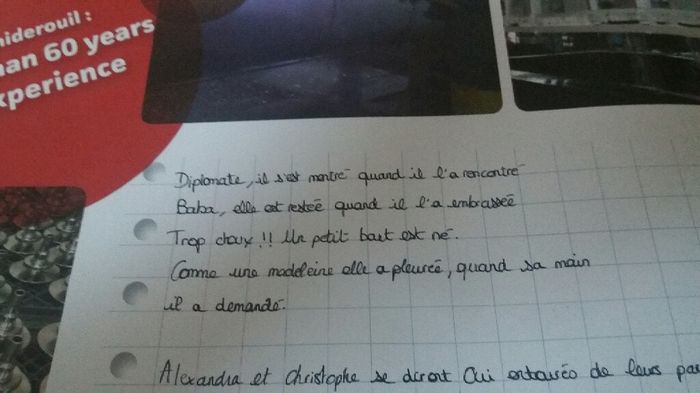 niderouil :
han 60 years
xperience
Diplomate, il s'est montré quand il l'a rencontré
Baba, elle est restée quand il l'a embrassée
Trop choux !! Un petit bout est né.
Comme une madeleine elle a pleurée, quand sa main
il a demandé.
Alexandra et Christophe se diront Oui entourés de leurs pas